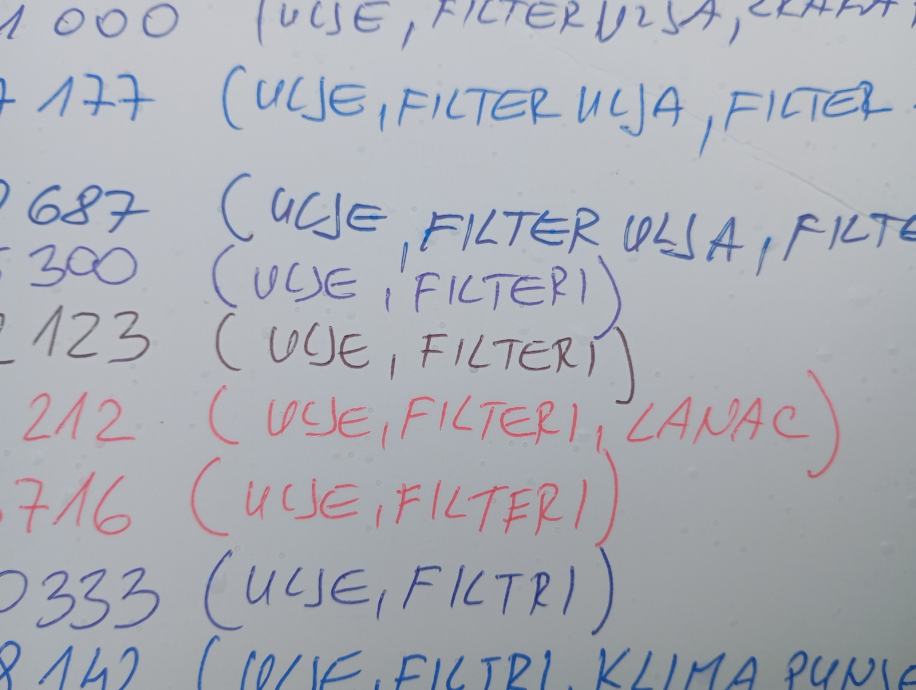 1 000 (ULJE, FILTER ULJA,
7 177 (ULJE, FILTER ULJA, FILTER
687 (ULJE, FILTER ULJA, FILTE
300 (ULJE, FILTERI)
2 123 (ULJE, FILTERI)
212 (ULJE, FILTERI, LANAC)
716 (ULJE, FILTERI)
0333 (ULJE, FILTRI)
8 142 (ULJE, FILTRI, KLIMA PUNJE